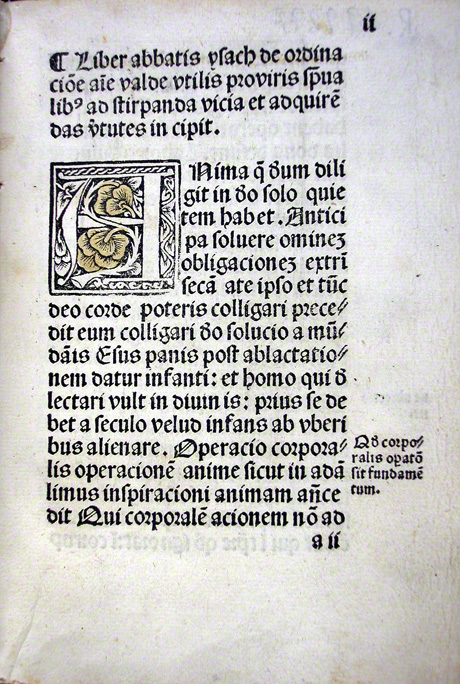 ii
¶ Liber abbatis ysach de ordina
ciōe aīe valde vtilis proviris sp̄ua
libꝰ ad stirpanda vicia et adquirē
das v̄tutes in cipit.
ANima q̄ dum dili
git in do solo quie
tem habet. Antici
pa soluere ominez
obligacionez extrī
secā ate ipso et tūc
deo corde poteris colligari prece⸗
dit eum colligari do solucio a mū⸗
dāis Esus panis post ablactatio⸗
nem datur infanti: et homo qui d̄
lectari vult in diuinis: prius se de
bet a seculo velud infans ab vberi
bus alienare. Operacio corpora⸗
lis operacionē anime sicut in adā
limus inspiracioni animam an̄ce
dit Qui corporalē acionem nō ad
Qd corpo⸗
ralis op̄atō
sit fundamē
tum.
a ii